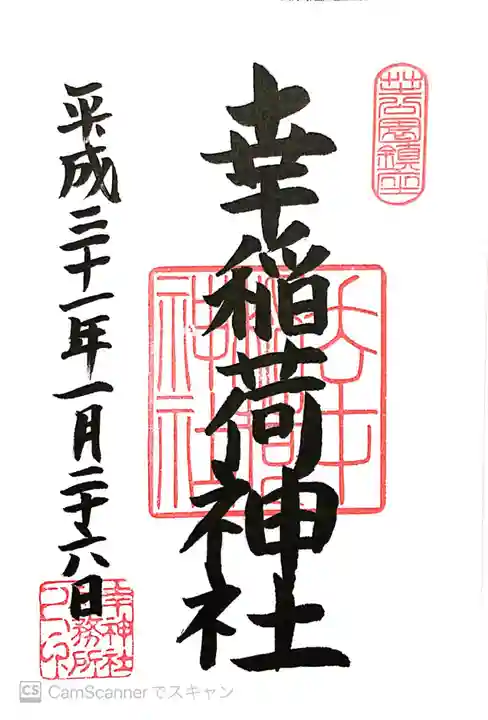 芝公園鎮座
幸稲荷神社
平成三十一年一月二十六日
CS CamScanner でスキャン